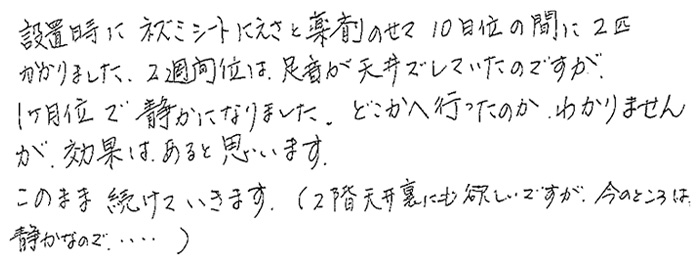 設置時に ネズミシートにえさと薬剤のせて 10日位の間に 2匹
かかりました、2週間位は、足音が天井でしていたのですが、
1ヶ月位で静かになりました。どこかへ行ったのか、わかりません
が、効果は、あると思います。
このまま続けていきます。(2階天井裏にも欲しいですが、今のところは、
静かなので、‥‥)